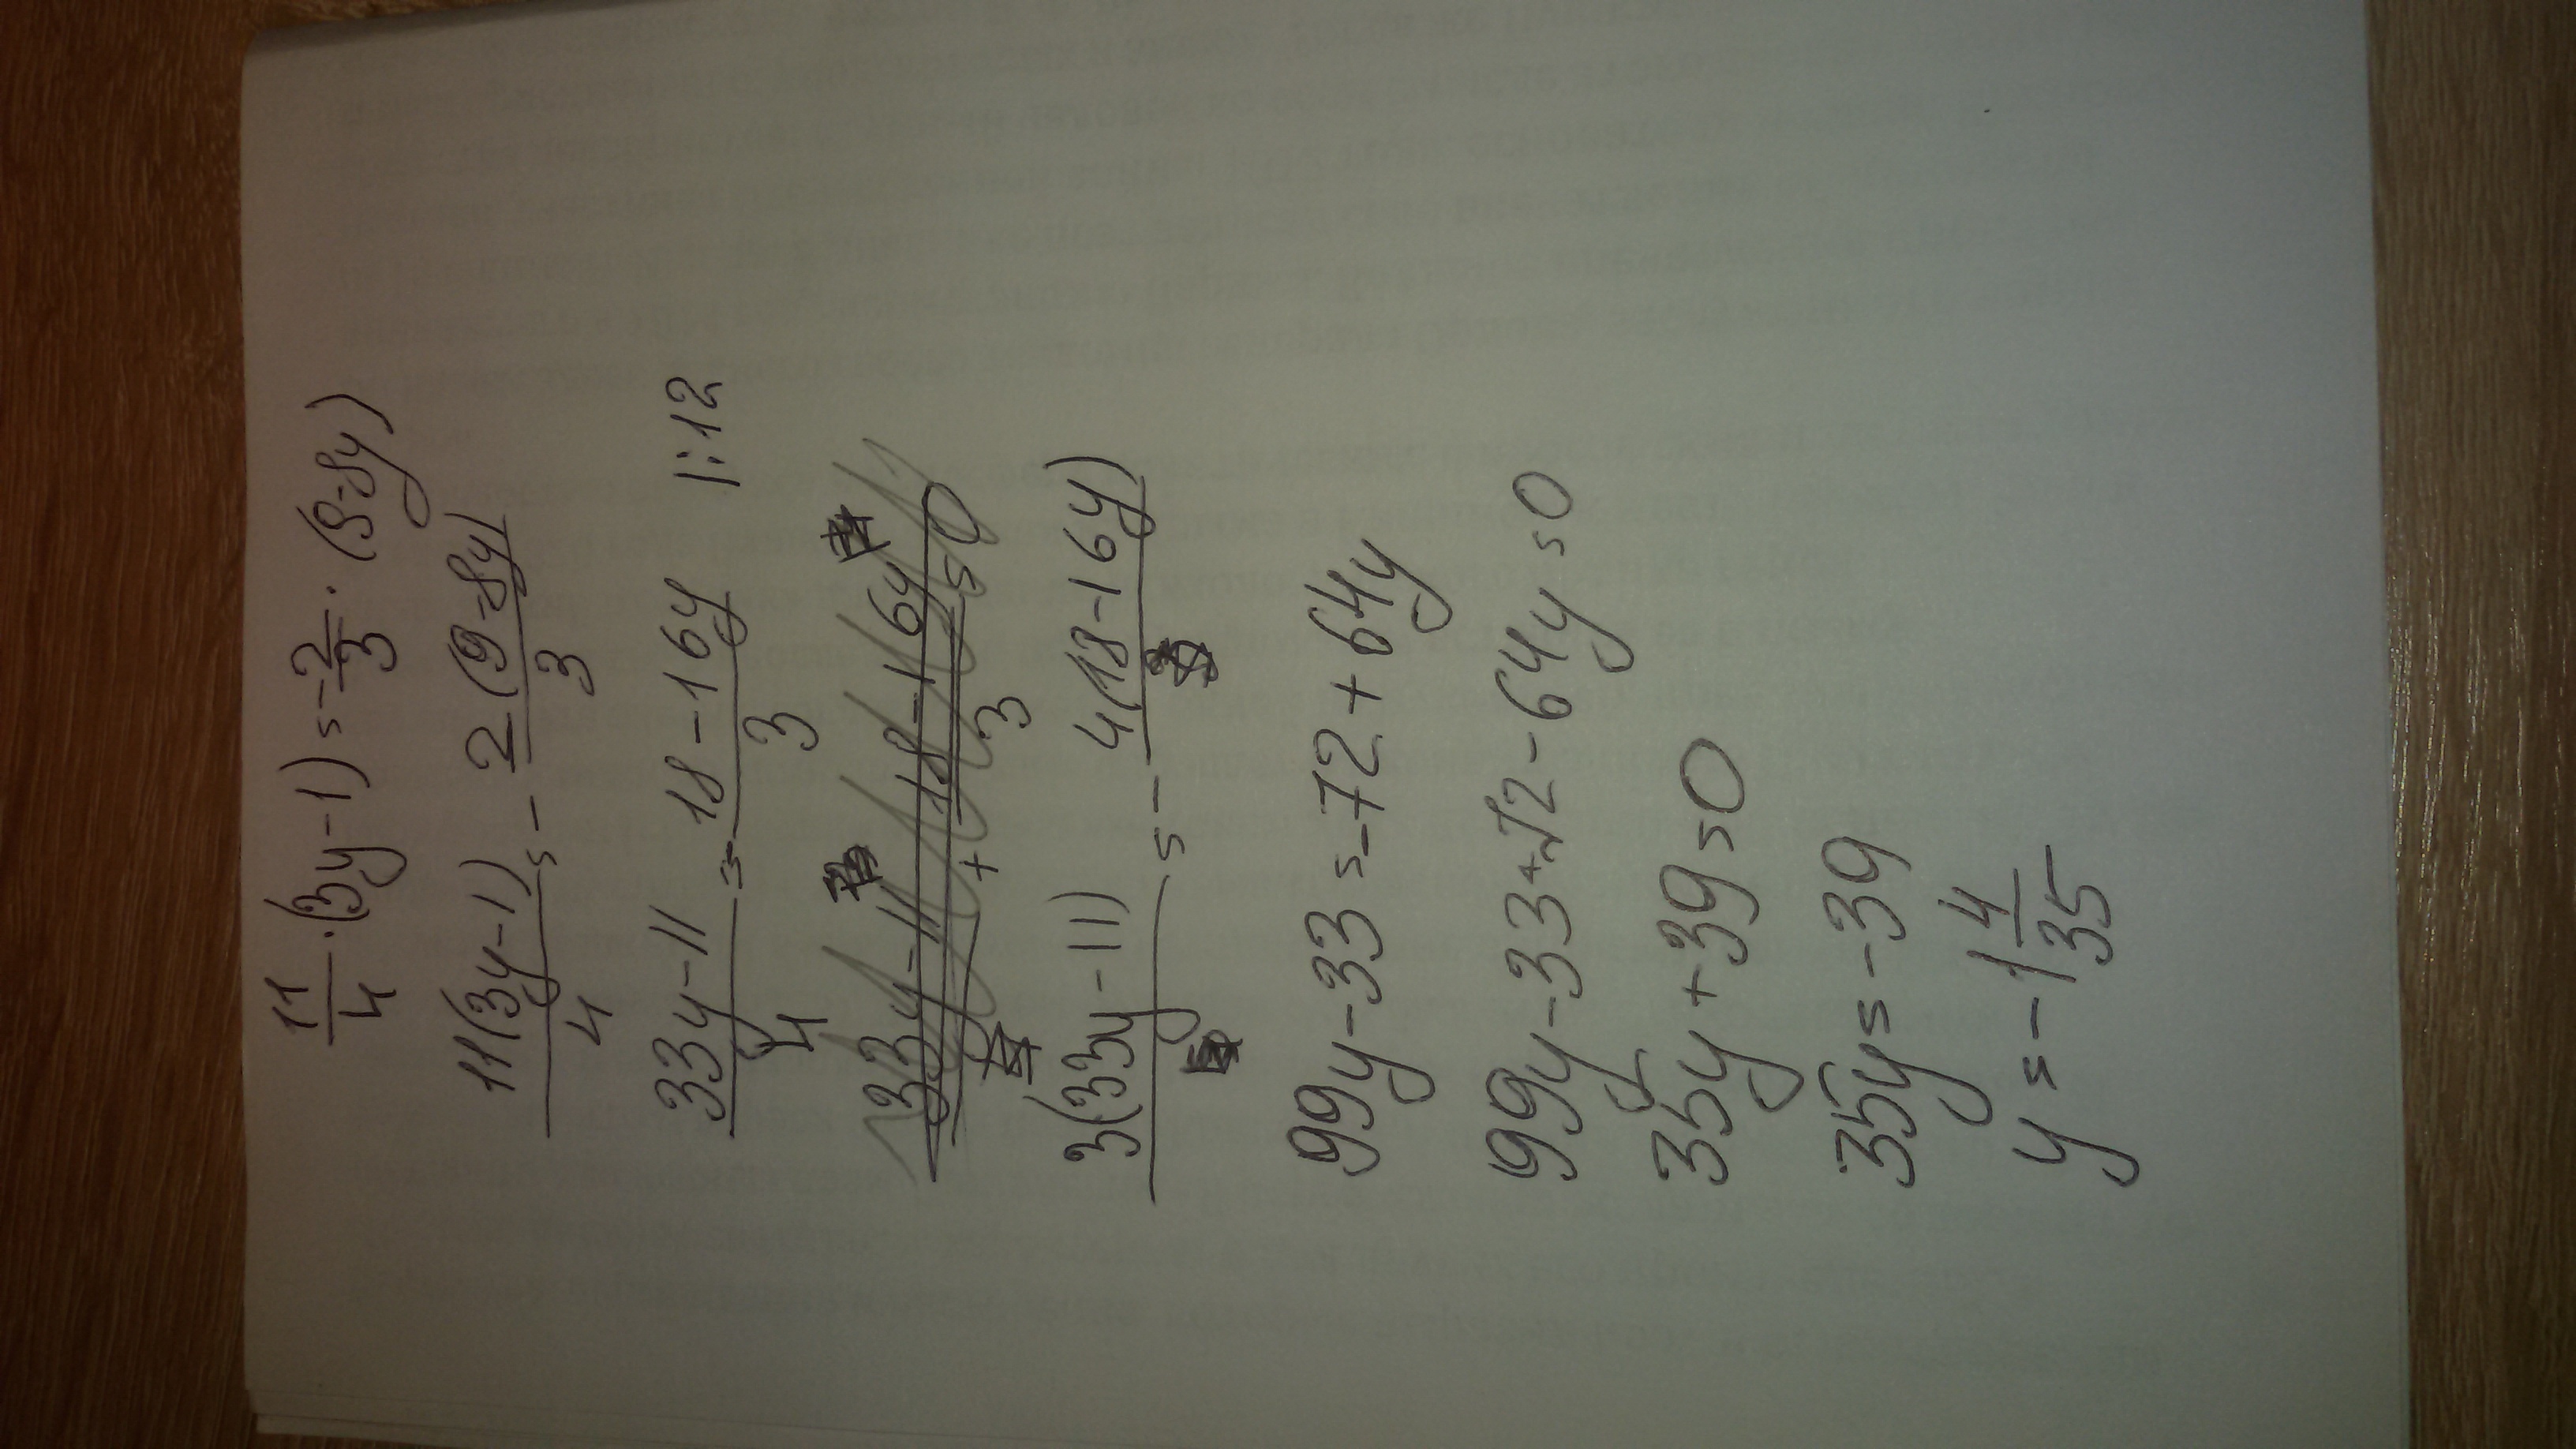 11/4 · (3y-1) = -2/3 · (9-8y)
11(3y-1)/4 = - 2(9-8y)/3
33y-11/4 = - 18-16y/3 |:12
33y-11/4 + 18-16y/3 = 0
3(33y-11) = - 4(18-16y)
99y-33 = -72+64y
99y-33+72-64y=0
35y+39=0
35y=-39
y=-1 4/35